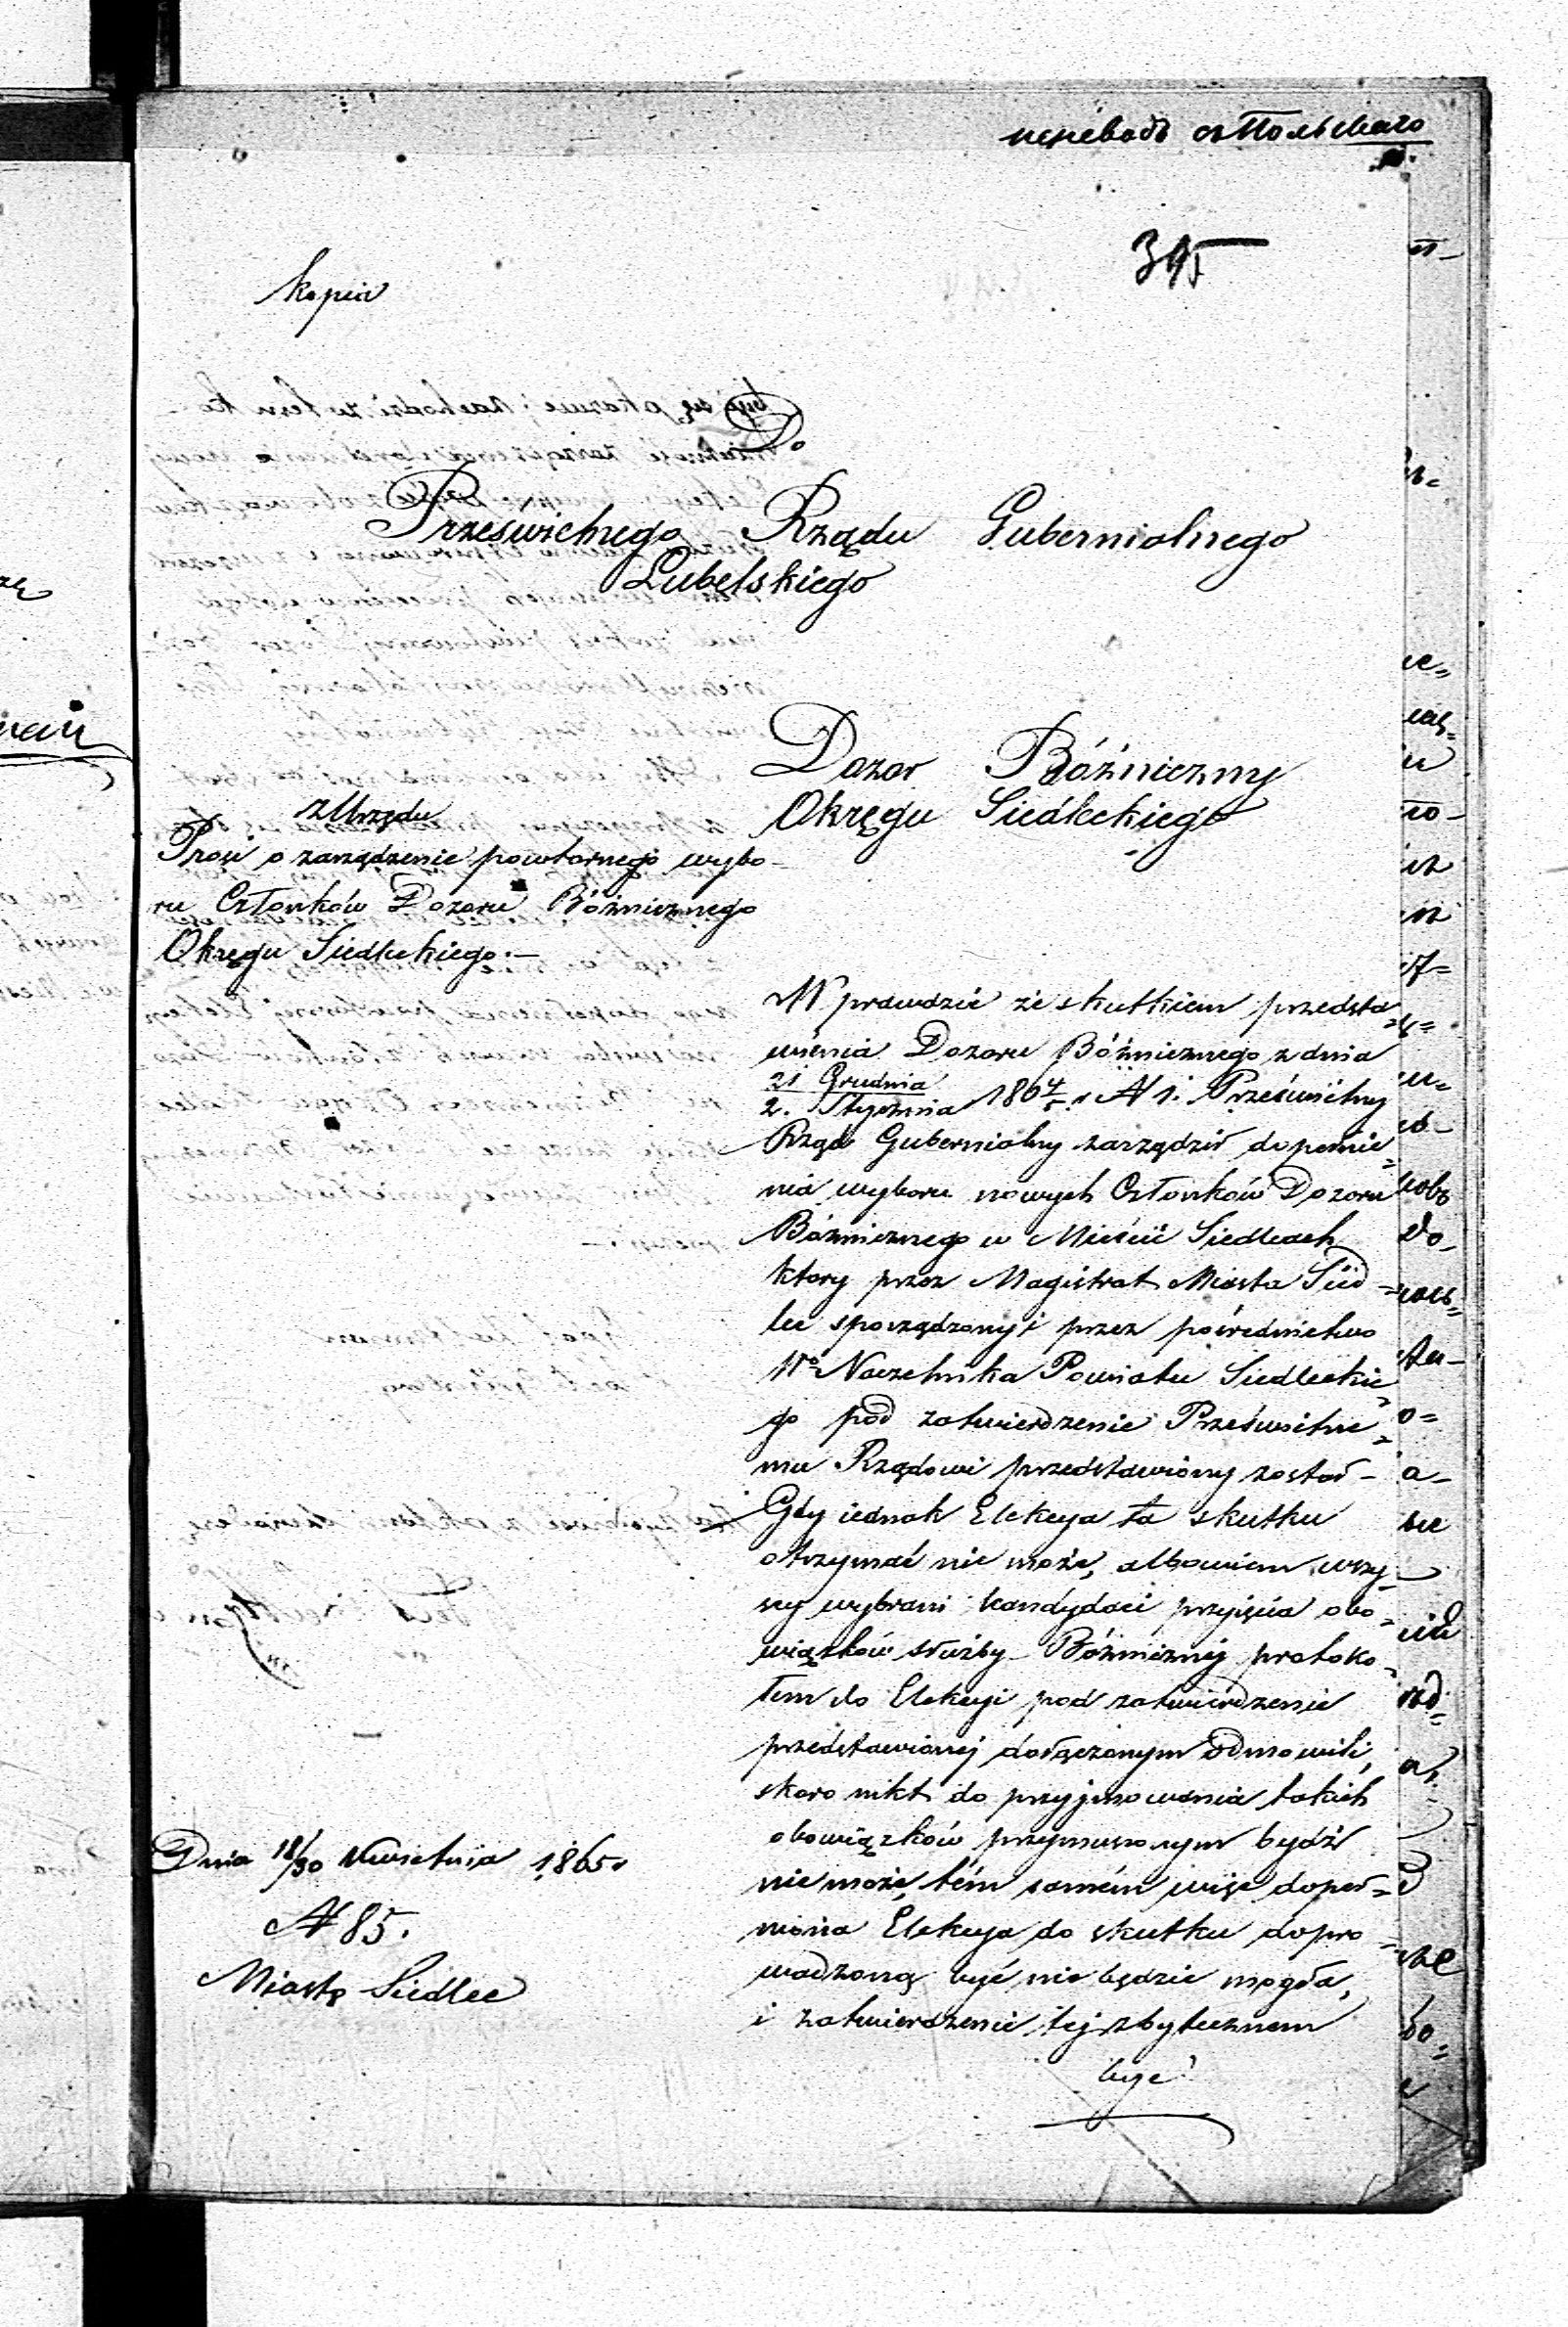 переводъ съ Польскаго
395
kopia
Do
Prześwietnego Rządu Gubernialnego
Lubelskiego
Dozor Bóźniczny
Okręgu Siedleckiego
z Urzędu
Prosi o zarządzenie powtornego wybo-
ru Członków Dozoru Bóźnicznego
Okręgu Siedleckiego.—
W prawdzie że skutkiem przedsta=
wienia Dozoru Bóźnicznego z dnia
21 Grudnia
2. Stycznia 1864/5 r. N 1. Prześwietny
Rząd Gubernialny zarządził dopełnie=
nia wyboru nowych Członków Dozoru
Bóźnicznego w Mieście Siedlcach
ktory przez Magistrat Miasta Sied=
lec sporządzony i przez pośrednictwo
Wo Naczelnika Powiatu Siedleckie=
go pod zatwierdzenie Prześwietne=
mu Rządowi przedstawiony został—
Gdy iednak Elekcya ta skutku
otrzymać nie może, albowiem wszy-
scy wybrani kandydaci przyjęcia obo=
wiązków służby Bóźnicznéj protoko=
łem do Elekcyi pod zatwierdzenie
przedstawionéj dołączonym odmowili,
skoro nikt do przyjmowania takich
obowiązków przymuszonym bydź
nie może, tém samém więc dopeł=
niona Elekcya do skutku dopro=
wadzoną być nie będzie mogła,
i zatwierdzenie téj zbytecznem
być
Dnia 18/30 Kwietnia 1865 r
N 85.
Miasto Siedlce